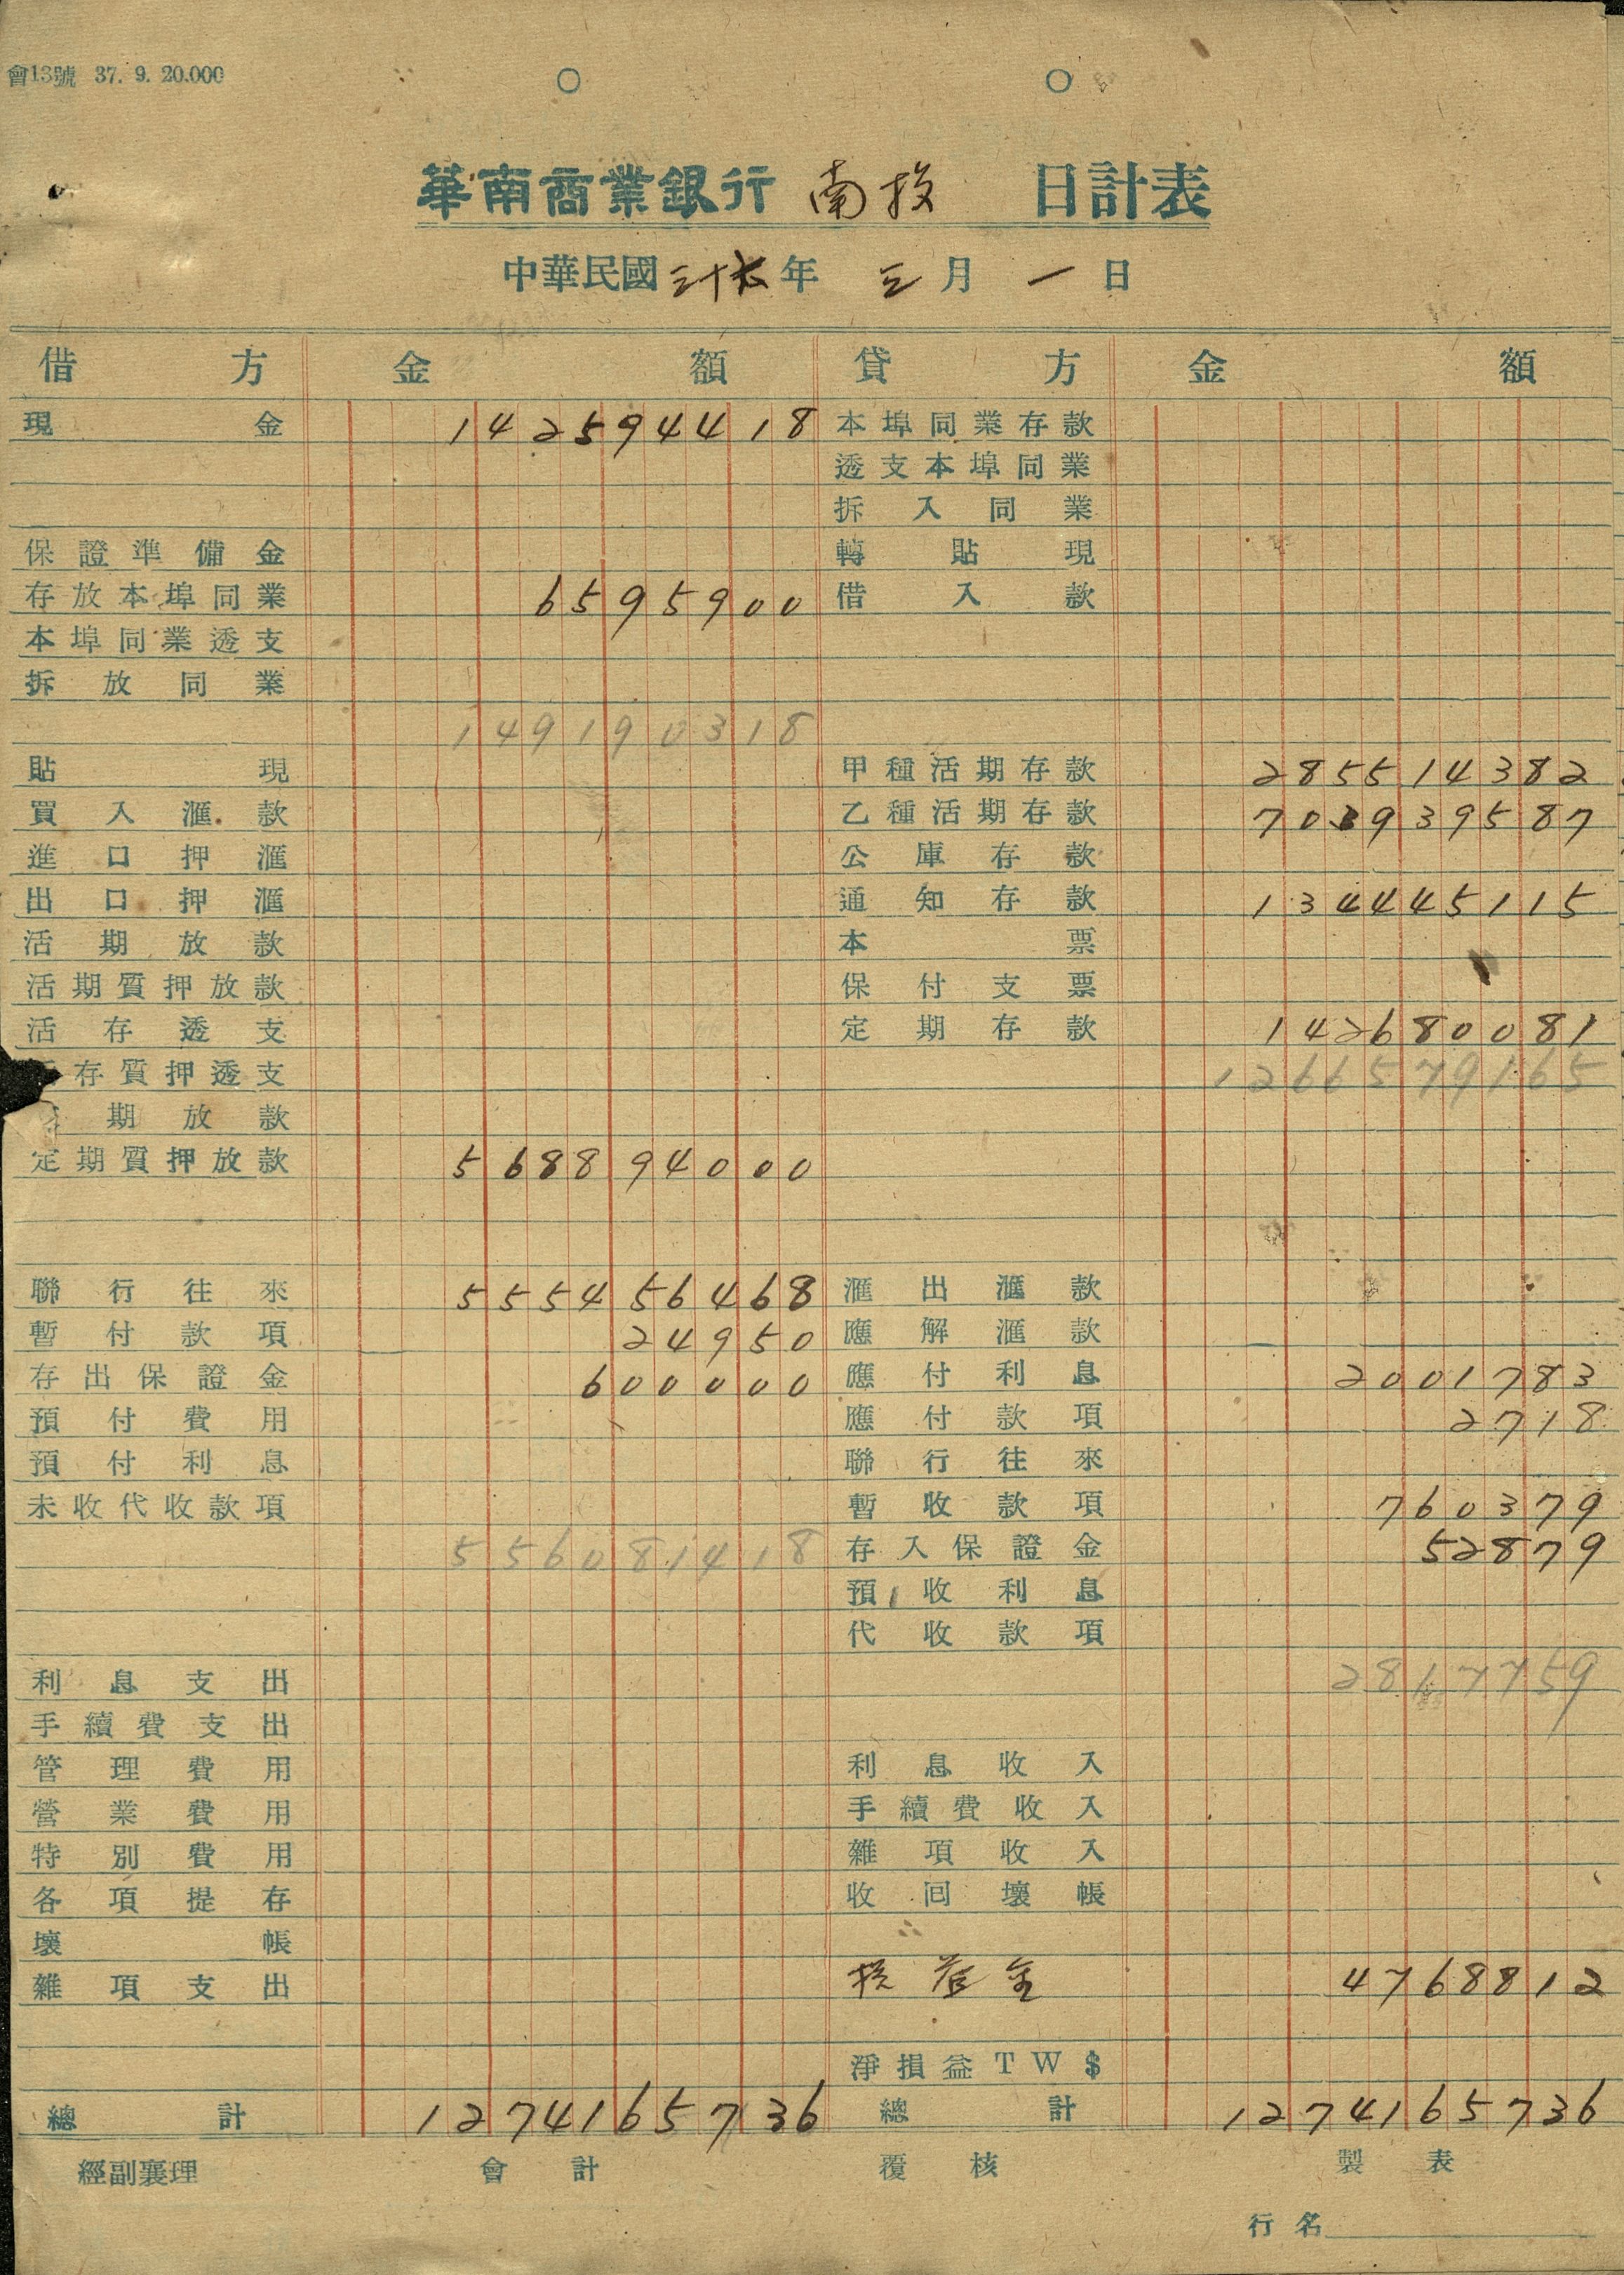 會13號 37. 9. 20.000
華南商業銀行 南投 日計表
中華民國三十年 三月 一日
借方 金額 貸方 金額
現金 142594418 本埠同業存款
透支本埠同業
拆入同業
保證準備金 轉貼現
存放本埠同業 6595900 借入款
本埠同業透支
拆放同業
149190318
貼現 甲種活期存款 285514382
買入滙款 乙種活期存款 703939587
進口押滙 公庫存款
出口押滙 通知存款 134445115
活期放款 本票
活期質押放款 保付支票
活存透支 定期存款 142680081
存質押透支 1266579165
期放款
定期質押放款 568894000
聯行往來 555456468 滙出滙款
暫付款項 24950 應解滙款
存出保證金 600000 應付利息 2001783
預付費用 應付款項 2718
預付利息 聯行往來
未收代收款項 暫收款項 760379
556081418 存入保證金 52879
預收利息
代收款項
利息支出 2817759
手續費支出
管理費用 利息收入
營業費用 手續費收入
特別費用 雜項收入
各項提存 收回壞帳
壞帳
雜項支出 損益金 4768812
淨損益TW$
總計 1274165736 總計 1274165736
經副襄理 會計 覆核 製表
行名